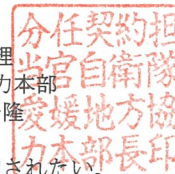 理
力本部
隆
されたい。
分任契約担
当官自衛隊
愛媛地方協
力本部長印